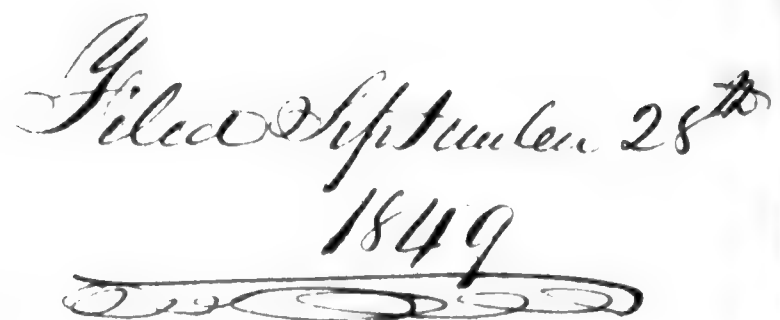 Filed September 28th
1849